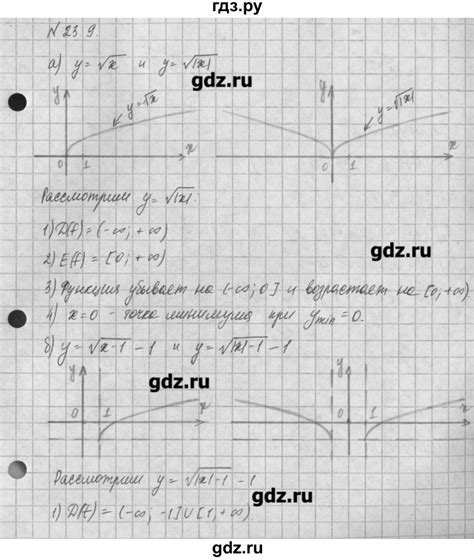 гдз.ру
№ 23.9.
а) y = √x и y = √|x|
gdz.ru
gdz.ru
y
y = √x
0
1
x
y
y = √|x|
0
1
x
Рассмотрим y = √|x|:
1) D(f) = (-∞; +∞)
gdz.ru
2) E(f) = [0; +∞)
3) Функция убывает на (-∞; 0] и возрастает на [0; +∞).
4) x=0 - точка минимума при y min = 0.
б) y = √x-1 - 1 и y = √|x|-1 - 1
gdz.ru
y
0
1
x
y
0
1
x
gdz.ru
Рассмотрим y = √|x|-1 - 1
gdz.ru
1) D(f) = (-∞; -1] ∪ [1; +∞).
gdz.ru